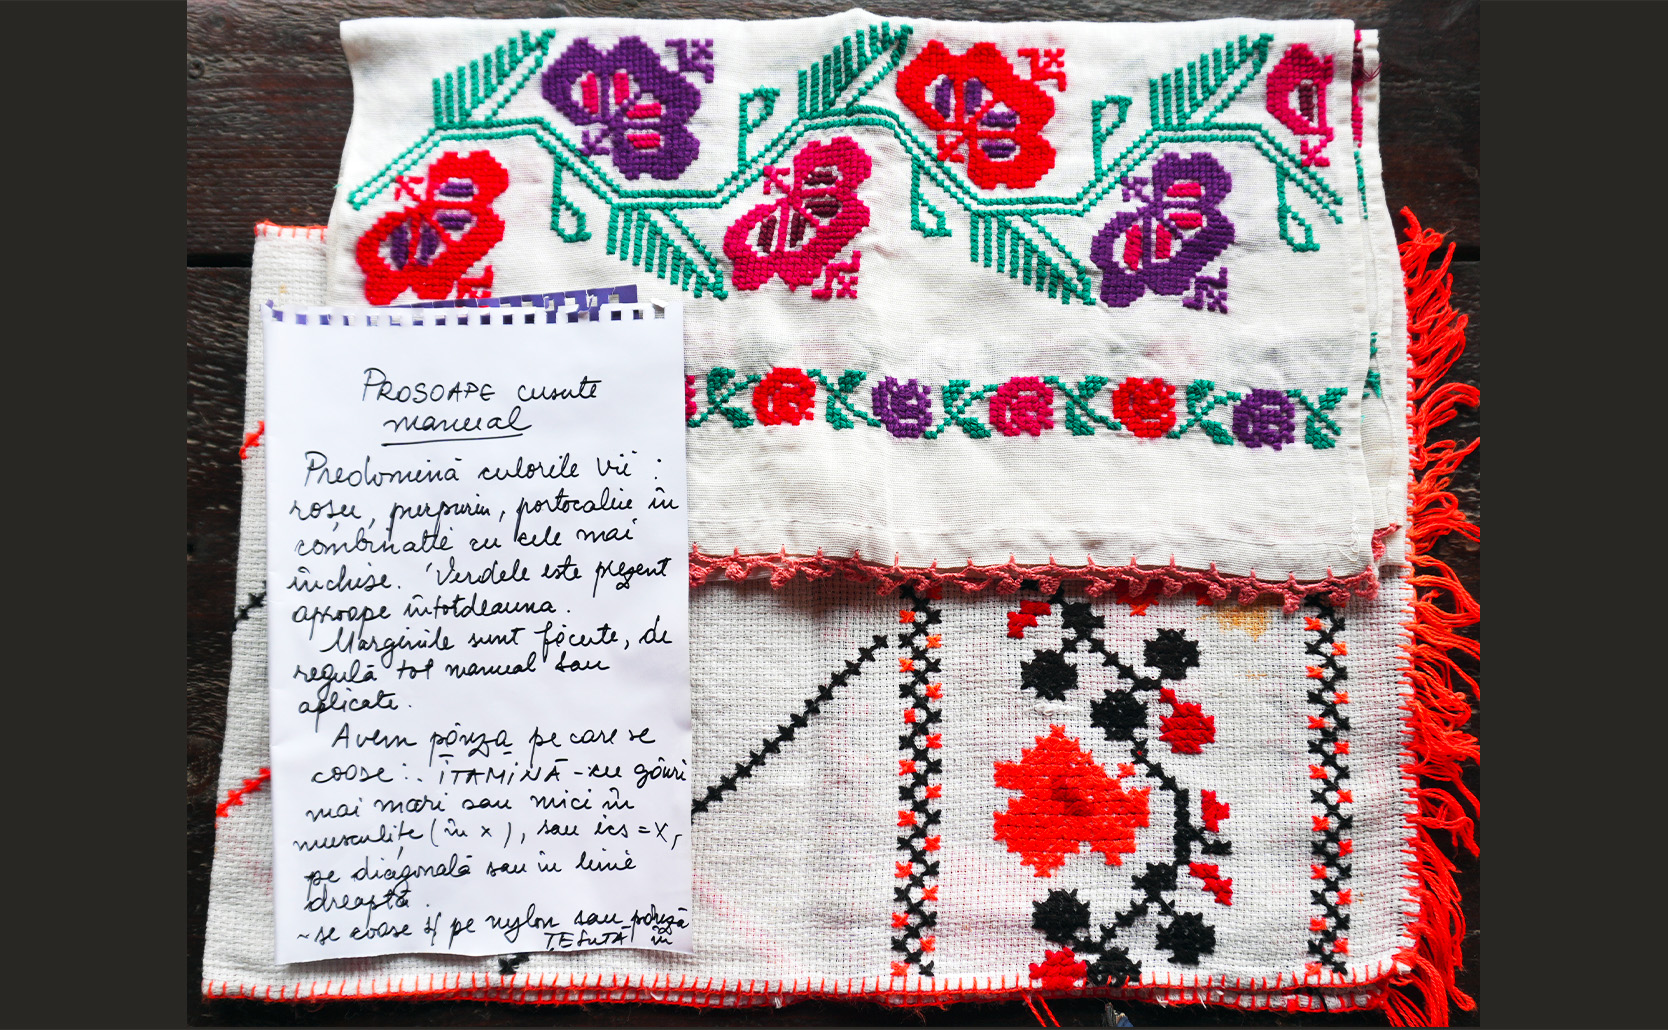 PROSOAPE cusute
manual
Predomină culorile vii :
roșu, purpuriu, portocaliu în
combinație cu cele mai
închise. Verdele este prezent
aproape întotdeauna.
Marginile sunt făcute, de
regulă tot manual sau
aplicate.
Avem pânza pe care se
coase : ITAMINĂ - cu găuri
mai mari sau mici în
musculițe (în x), sau ics = X,
pe diagonală sau în linie
dreaptă.
- se coase și pe nylon sau pânză
ȚESUTĂ în